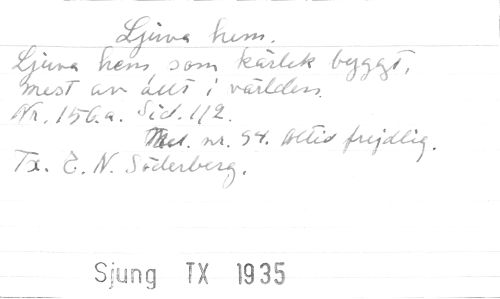 Ljuva hem.
Ljuva hem som kärlek byggt,
mest av allt i världen.
Nr. 156.a. Sid. 112.
Mel. nr. 54. Alltid frejdig.
Tx. E. N. Söderberg.
Sjung TX 1935